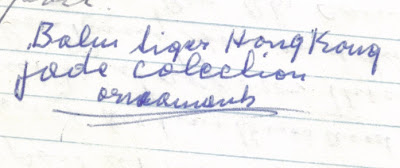 Balm tiger Hong Kong
jade colection
ornaments